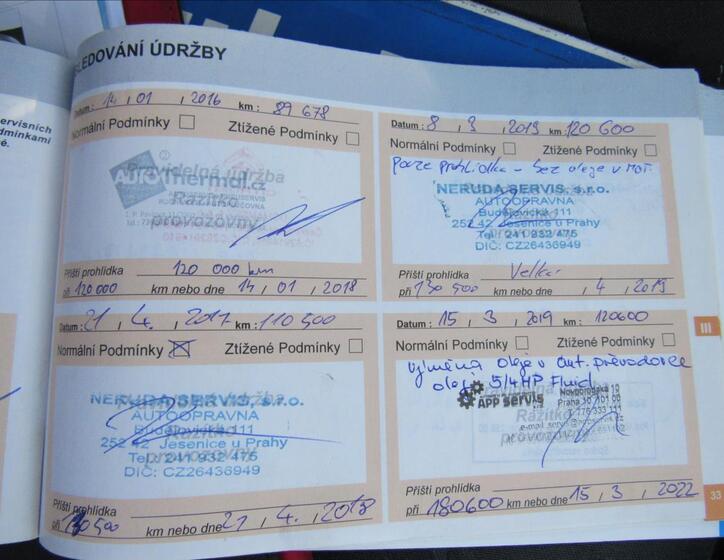 SLEDOVÁNÍ ÚDRŽBY
Datum: 14, 01, 2016 km: 89 678
Normální Podmínky Ztížené Podmínky
Pravidelná údržba
AutoThermal.cz
Razítko
provozovny
Příští prohlídka 120 000 km
při 120 000 km nebo dne 14, 01, 2018
Datum: 21, 4, 2017 km: 110 500
Normální Podmínky Ztížené Podmínky
NERUDA SERVIS, s.r.o.
AUTOOPRAVNA
Budějovická 111
252 42 Jesenice u Prahy
Tel.: 241 932 475
DIČ: CZ26436949
Příští prohlídka
při 130 500 km nebo dne 21, 4, 2018
Datum: 8, 3, 2019 km: 120 600
Normální Podmínky Ztížené Podmínky
pouze prohlídka - bez oleje v mot.
NERUDA SERVIS, s.r.o.
AUTOOPRAVNA
Budějovická 111
252 42 Jesenice u Prahy
Tel.: 241 932 475
DIČ: CZ26436949
Příští prohlídka Velká
při 130 500 km nebo dne , 4, 2019
Datum: 15, 3, 2019 km: 120600
Normální Podmínky Ztížené Podmínky
Výměna oleje v aut. převodovce
olej
APP servis
Novopořská 10
Praha 10, 101 00
provozovny
Příští prohlídka
při 180600 km nebo dne 15, 3, 2022
III
33
ervisních
dmínkami